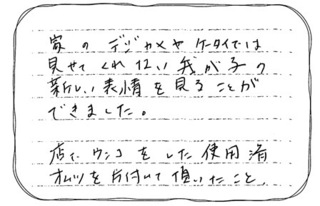 家のデジカメやケータイでは
見せてくれない我が子の
新しい表情を見ることが
できました。
店でウンコをした使用済
オムツを片付けて頂いたこと